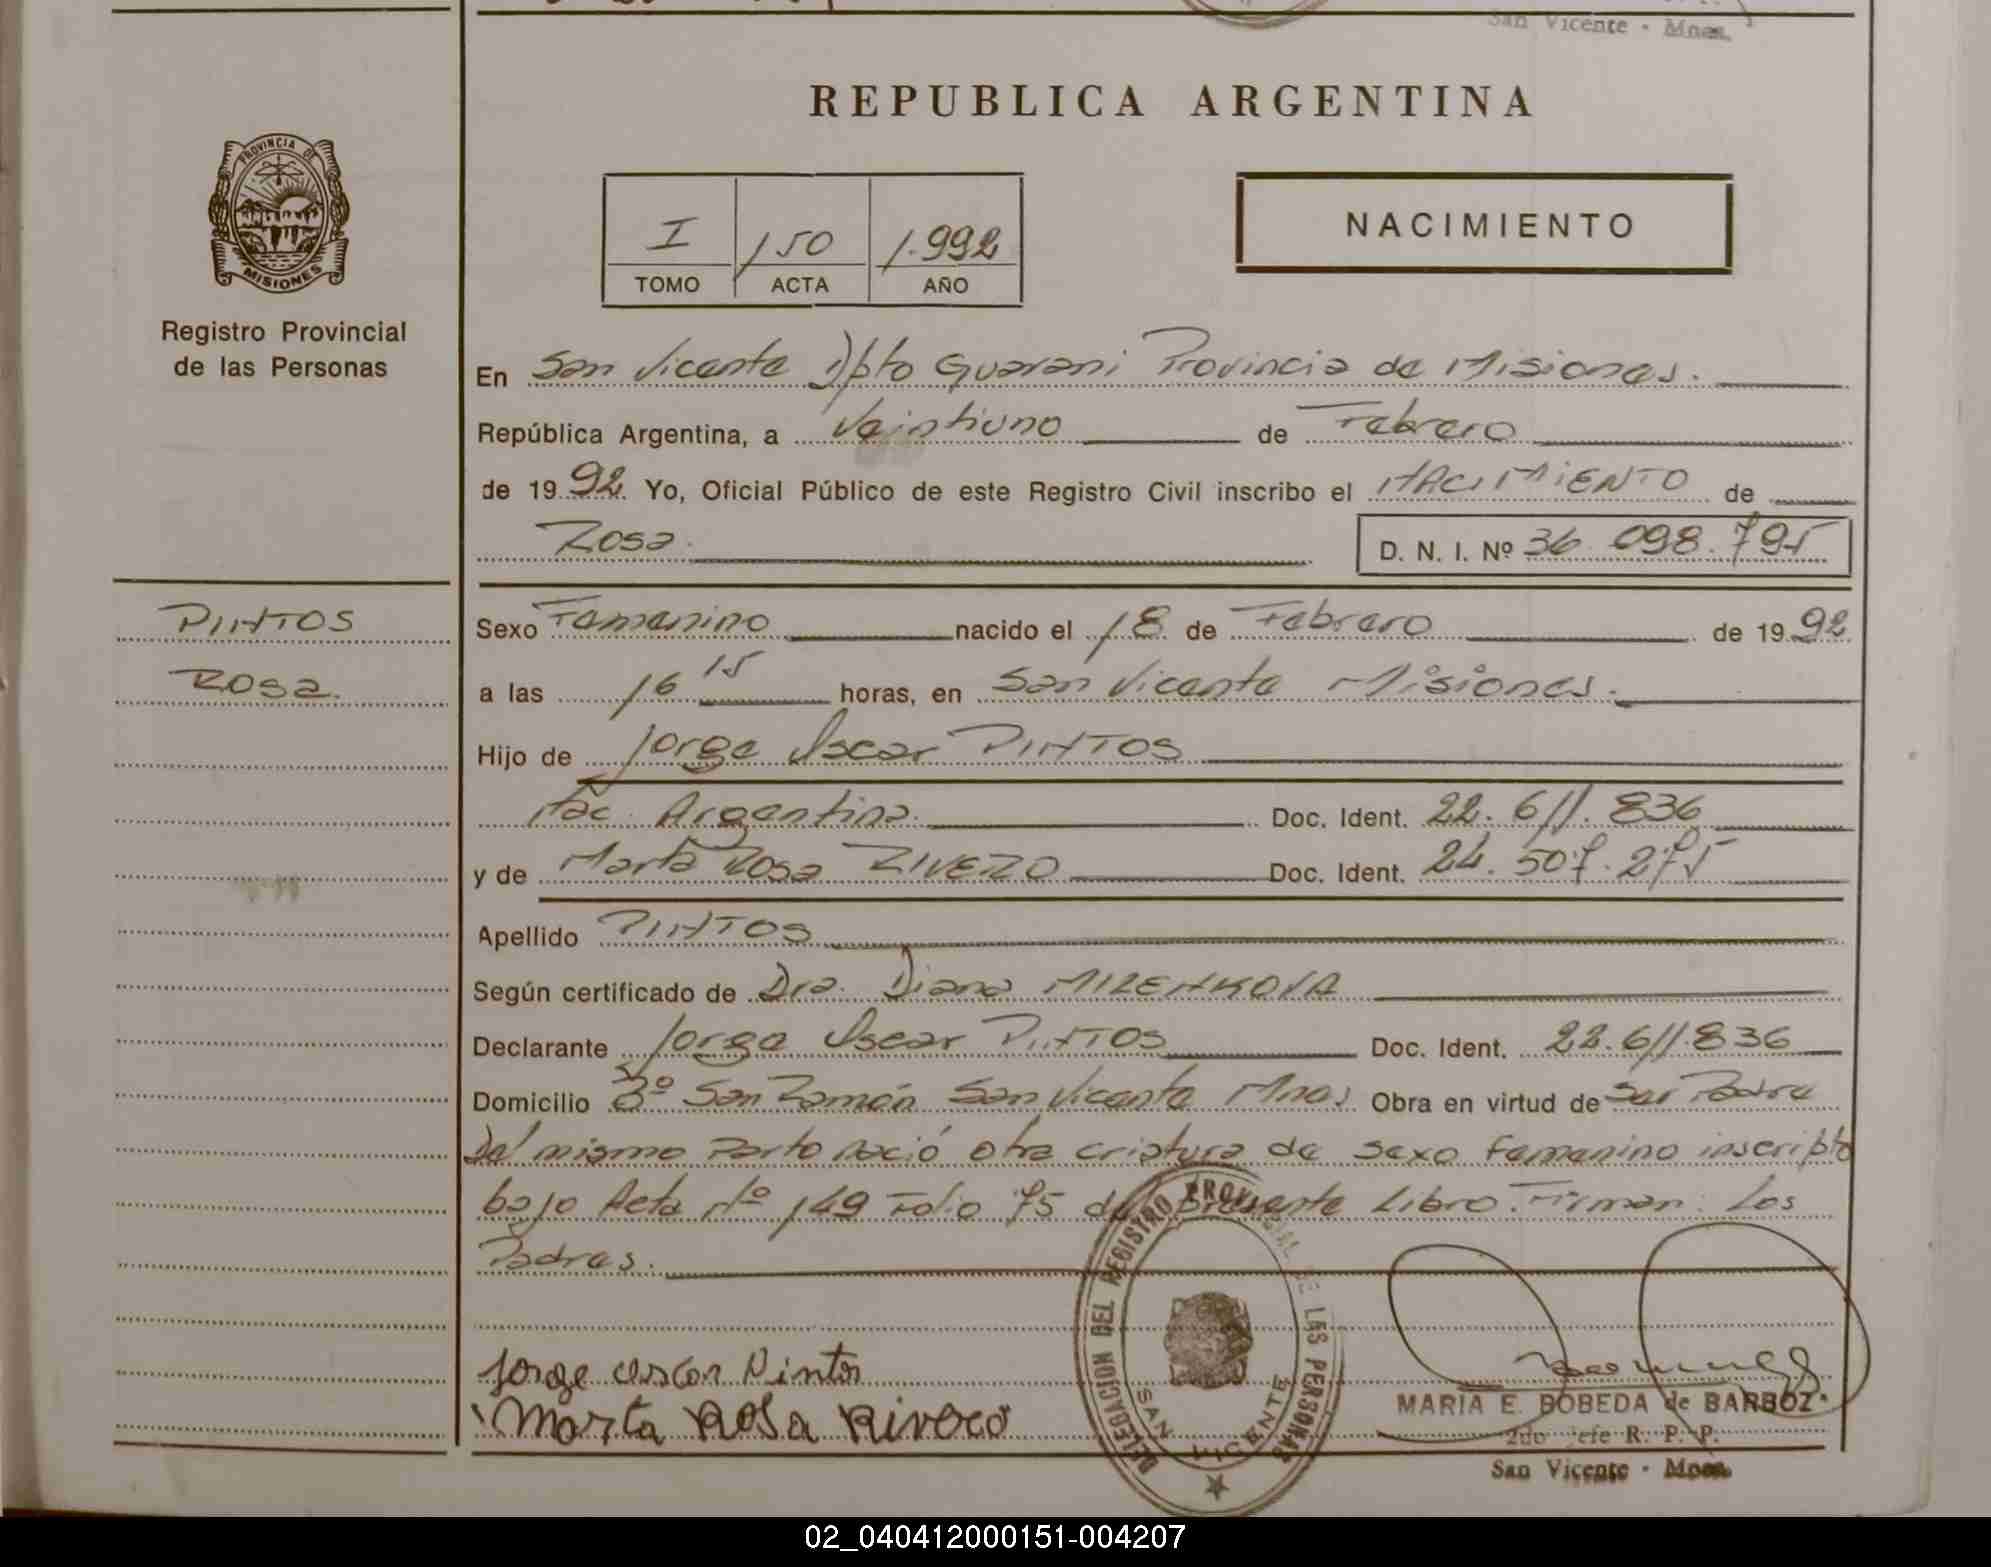 San Vicente - Mnes.
REPUBLICA ARGENTINA
PROVINCIA DE
MISIONES
Registro Provincial
de las Personas
I 150 1.992
TOMO ACTA AÑO
NACIMIENTO
En San Vicente Dpto Guarani Provincia de Misiones.
República Argentina, a Veintiuno de Febrero
de 1992. Yo, Oficial Público de este Registro Civil inscribo el NACIMIENTO de
Rosa. D. N. I. Nº 36.098.795
PINTOS
Rosa.
Sexo Femenino nacido el 18 de Febrero de 1992
a las 16 15 horas, en San Vicente Misiones.
Hijo de Jorge Oscar PINTOS
Nac. Argentina. Doc. Ident. 22.611.836
y de Marta Rosa RIVERO Doc. Ident. 24.507.275
Apellido PINTOS
Según certificado de Dra. Diana MIRENKOVA
Declarante Jorge Oscar PINTOS Doc. Ident. 22.611.836
Domicilio Bº San Ramón San Vicente Mnes Obra en virtud de Ser Padre
Del mismo Parto nació otra criatura de sexo femenino inscripto
bajo Acta Nº 149 Folio 75 del presente Libro. Firman: Los
Padres.
Jorge Oscar Pintos
Marta Rosa Rivero
DELEGACION DEL REGISTRO PROVINCIAL DE LAS PERSONAS
SAN VICENTE
MARIA E. BOBEDA de BARBOZ
2do Jefe R. P. P.
San Vicente - Mnes.
02_040412000151-004207